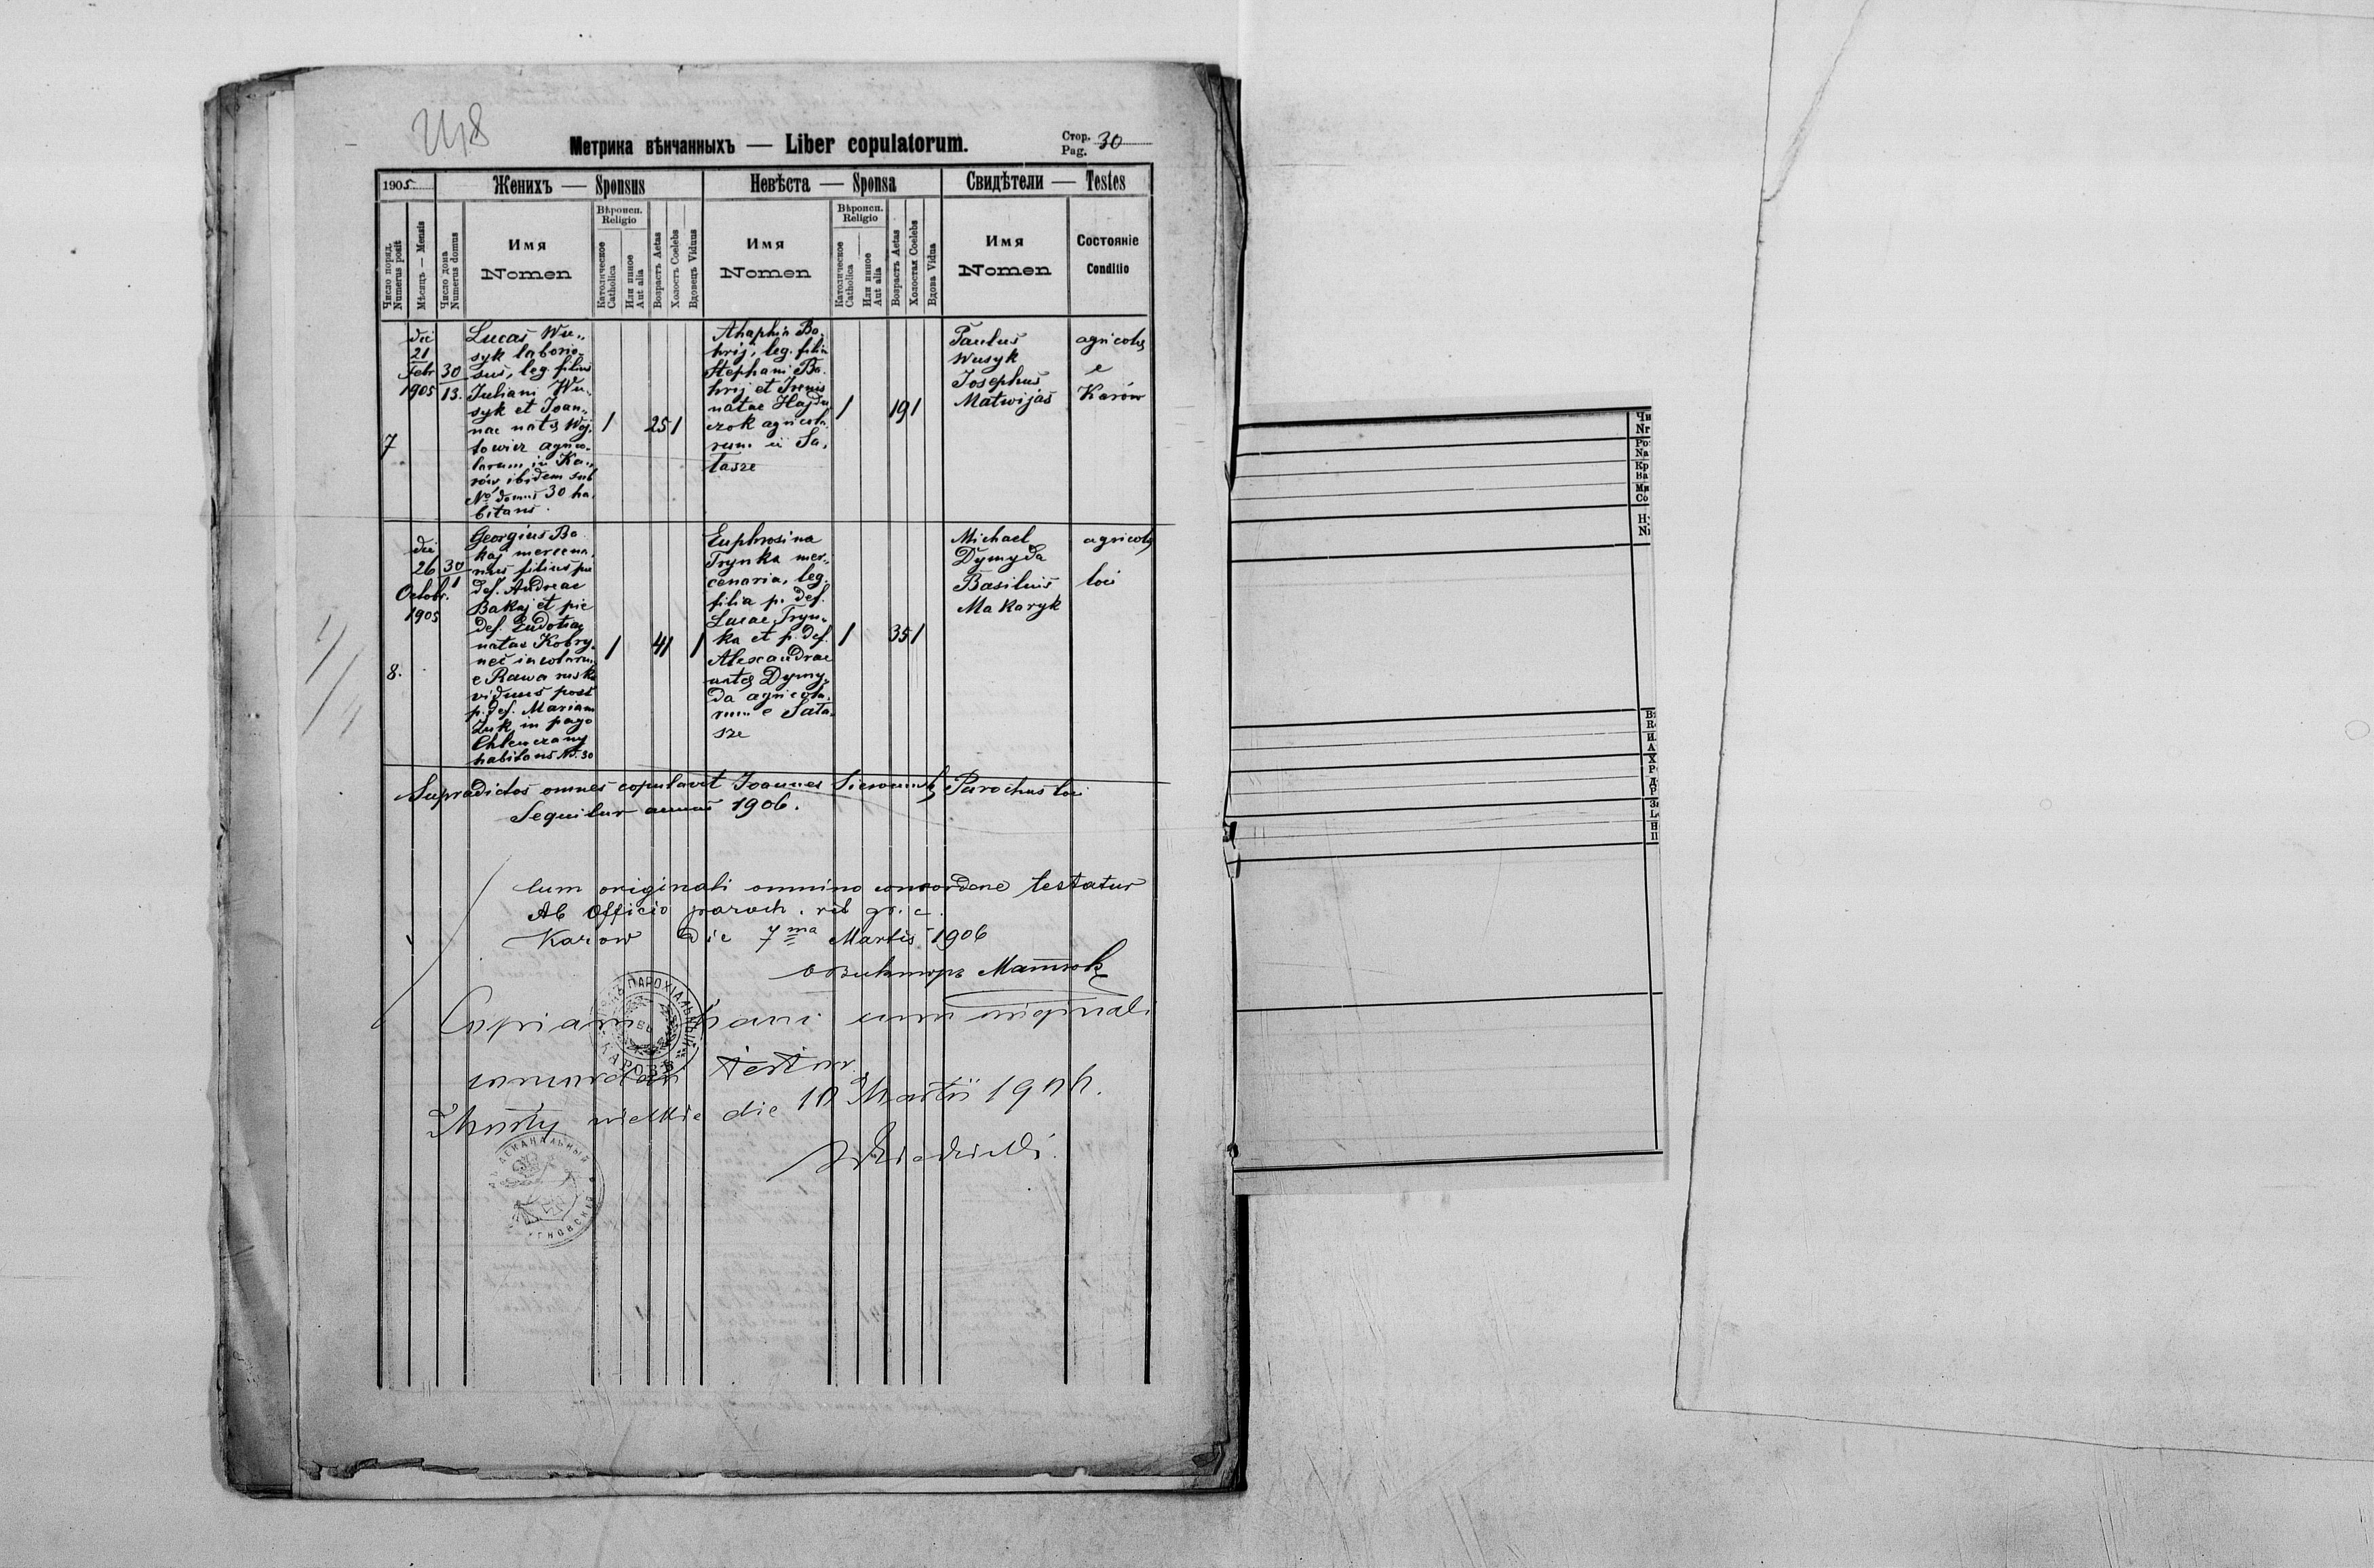 248
Метрика вѣнчанныхъ — Liber copulatorum.
Стор. Pag. 30
1905
Женихъ — Sponsus
Невѣста — Sponsa
Свидѣтели — Testes
Число поряд. Numerus posit
Мѣсяцъ — Mensis
Число дома Numerus domus
Имя Nomen
Вѣроисп. Religio
Католическое Catholica
Или инное Aut alia
Возрастъ Aetas
Холостъ Coelebs
Вдовецъ Viduus
Имя Nomen
Вѣроисп. Religio
Католическое Catholica
Или инное Aut alia
Возрастъ Aetas
Холостая Coelebs
Вдова Vidua
Имя Nomen
Состояніе Conditio
7
die
21
Febr
1905
30
13.
Lucas Wu„
syk laborio„
sus, leg. filius
Juliani Wu„
syk et Joan„
nae natae Woj„
towicz agrico„
larum in Ka„
rów ibidem sub
No domus 30 ha„
bitans.
1
25
1
Ahaphia Bo„
hrij, leg. filia
Stephani Bo„
hrij et Irenis
natae Hajdu
czok agricola„
rum in Sa„
tasze
1
19
1
Paulus
Wusyk
Josephus
Matwijas
agricolae
e
Karów
8.
die
26
Octobr.
1905
30
1
Georgius Ba
kaj mercena„
rius filius pie
def. Andreae
Bakaj et pie
def. Eudotiae
natae Kobry„
nec incolarum
e Rawa ruska
viduus post
p. def. Mariam
Żuk, in pago
Chlewczany
habitans No. 30
1
41
1
Euphrosina
Trynka mer„
cenaria, leg.
filia p. def.
Lucae Tryn„
ka et p. def.
Alexandrae
natae Dymy„
da agricola„
rum e Sata„
sze
1
35
1
Michael
Dymyda
Basilius
Makaryk
agricolae
loci
Supradictos omnes copulavit Joannes Parochus loci
Sequitur annus 1906.
Cum originali omnino concordare testatur
Ab Officio paroch. rit gr. c.
Karow Die 7ma Martis 1906
Матюк
Copiam hanc cum originali
concordare testor.
Mosty wielkie die 10 Martii 1906.
ПАРОХІАЛЬНЫЙ
ВЪ
КАРОВѢ
ДЕКАНАЛЬНЫЙ